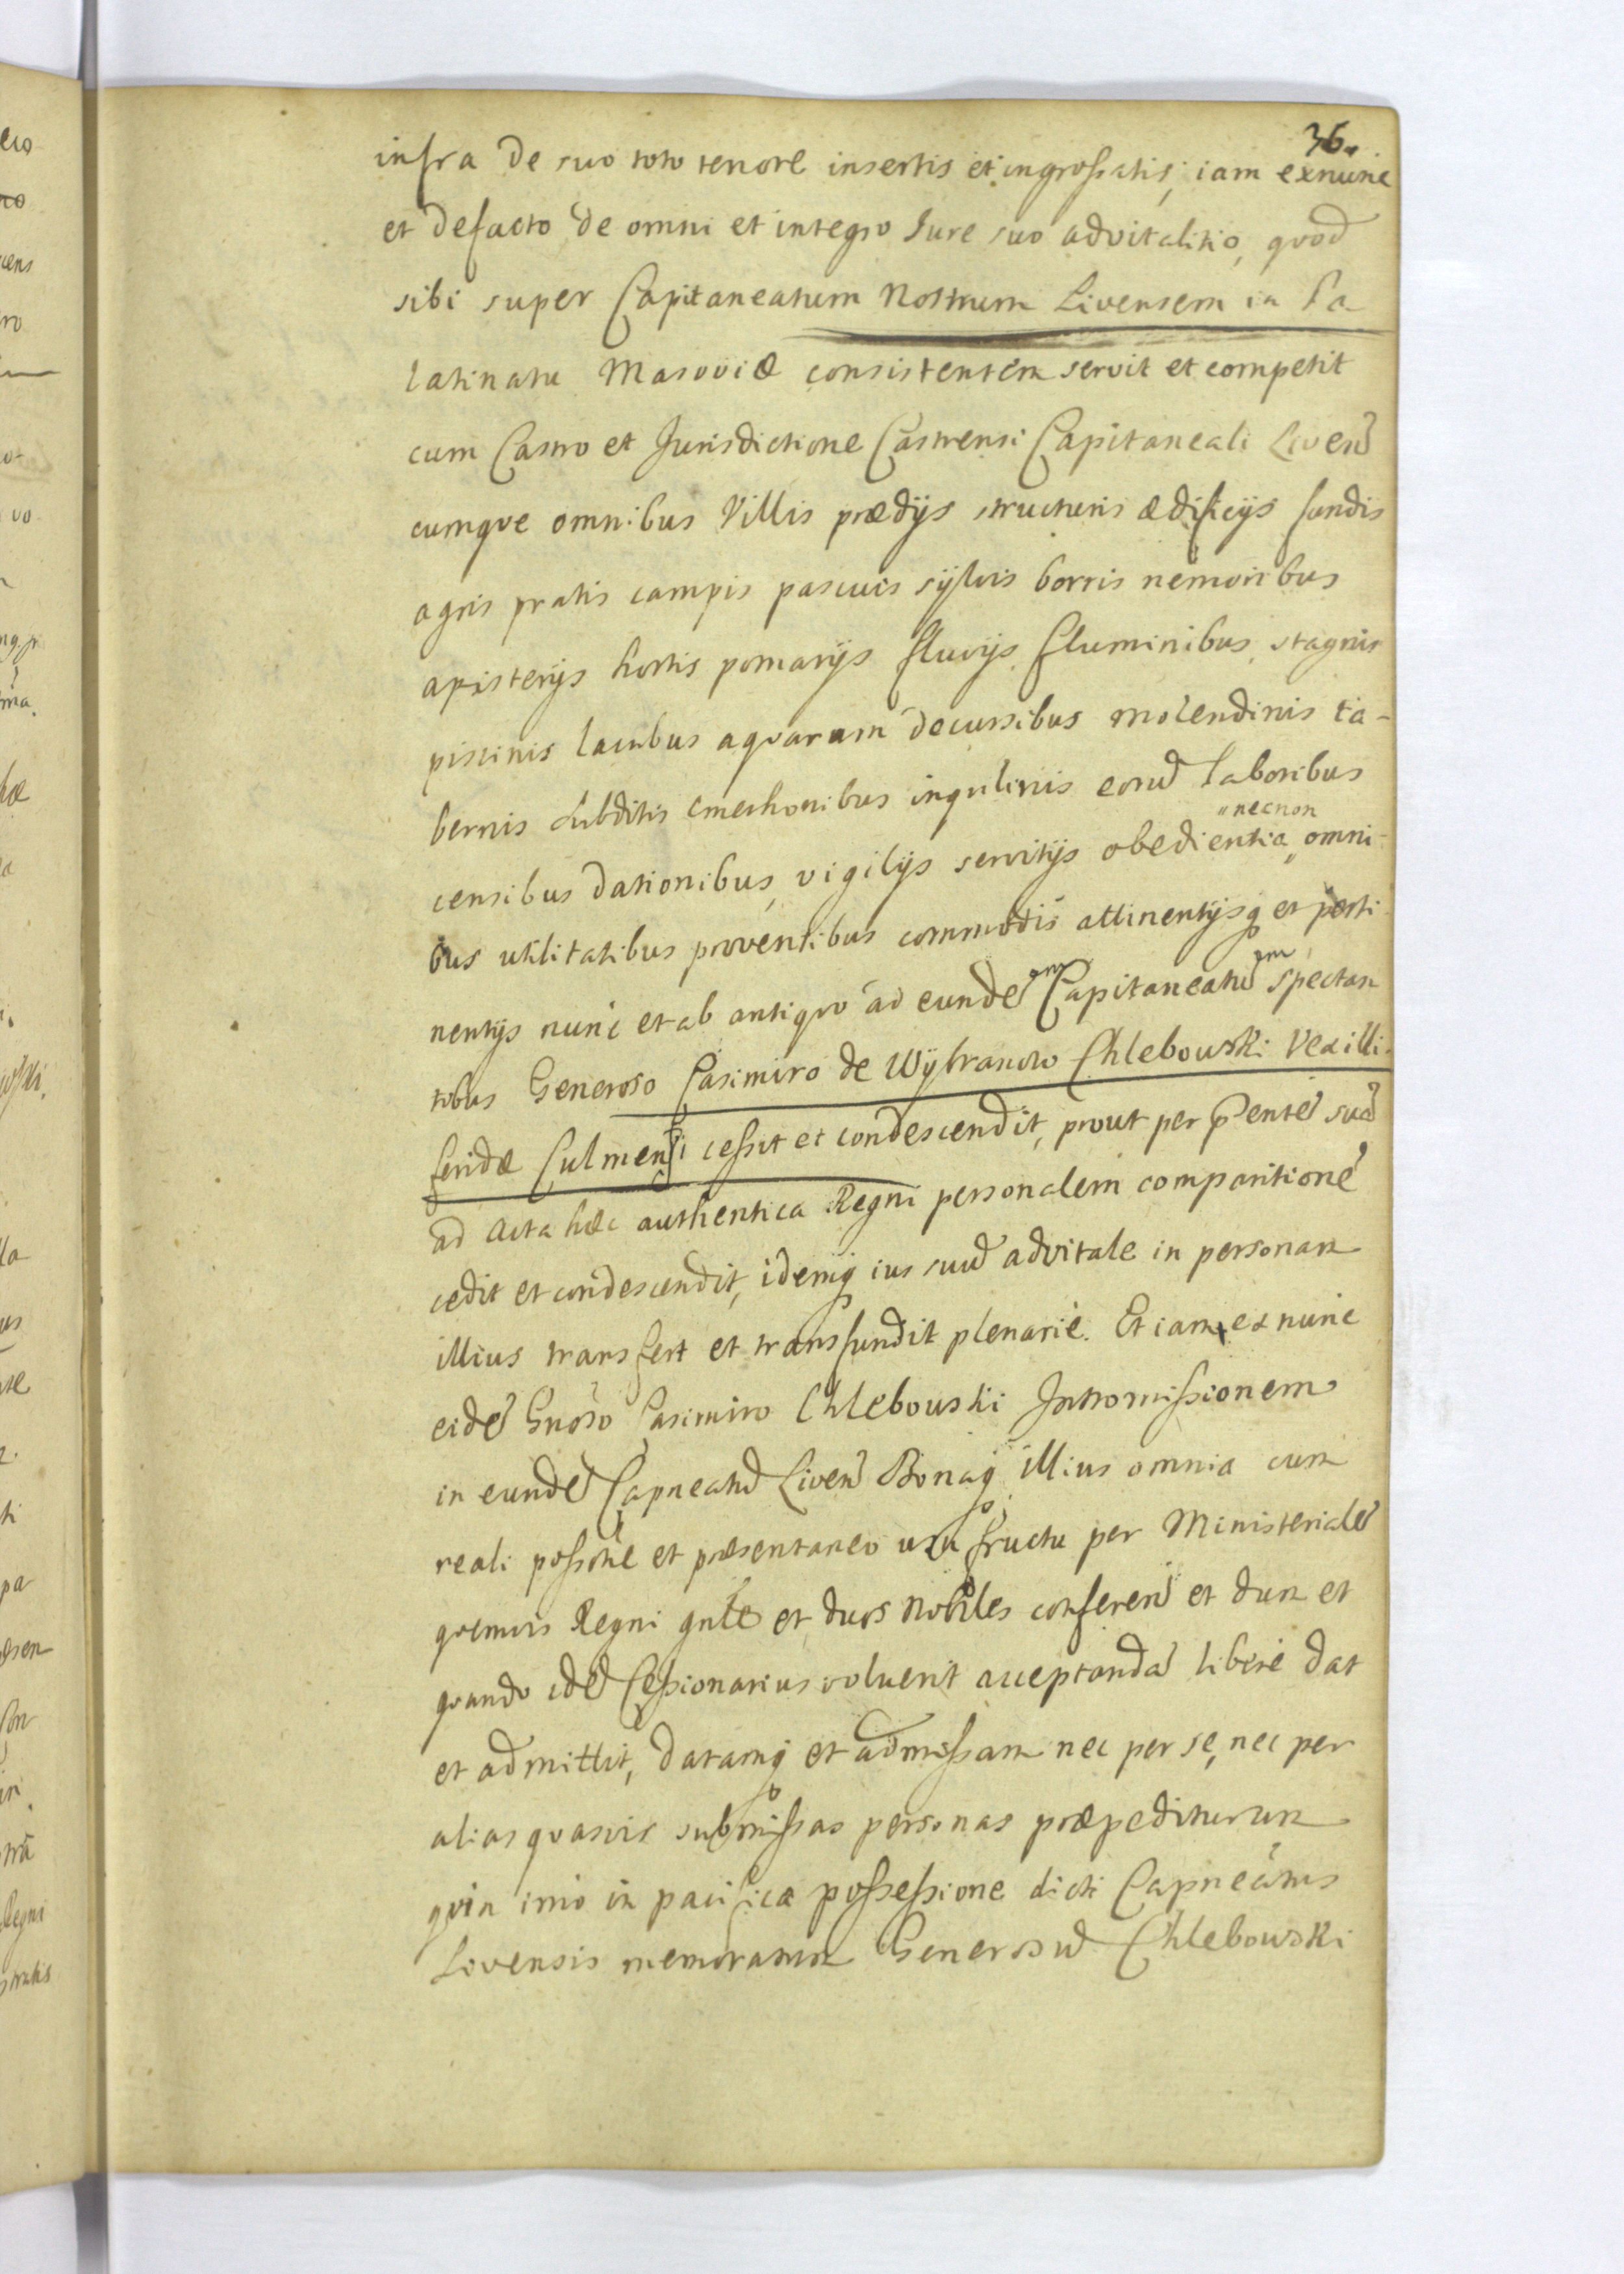 36.
infra de suo toto tenore insertis et ingrossatis, iam exnunc
et defacto de omni et integro Iure suo advitalitio, quod
sibi super Capitaneatum Nostrum Livensem in Pa
latinatu Masoviæ consistentem servit et competit
cum Castro et Jurisdictione Castrensi Capitaneali Liven̄
cumque omnibus Villis prædijs structuris ædificijs fundis
agris pratis campis pascuis sÿlvis borris nemoribus
apisterijs hortis pomarijs fluvijs fluminibus stagnis
piscinis lacubus aquarum decursibus molendinis ta-
bernis subditis cmethonibus inquilinis eorud̄ laboribus
censibus dationibus, vigilijs servitijs obedientia „necnon omni
bus utilitatibus proventibus commodis attinentijsq̨ et perti
nentijs nunc et ab antiquo ad eunde͞m Capitaneatu͞m spectan
tibus Generoso Casimiro de Wÿbranowo Chlebowski Vexilli-
ferido Culmensi cessit et condescendit, prout per p̄entē suā
ad Acta hæc authentica Regni personalem comparitionē
cedit et condescendit, idemq̨ ius suū advitale in personam
illius transfert et transfundit plenarie. Et iam ex nunc
eidē Gnōso Casimiro Chlebowski Intromissionem
in eundē Capneatū Liven̄ Bonaq̨ illius omnia cum
reali possōne et præsentaneo usu fructu per Ministerialē
quemvis Regni gnlē et duos Nobiles conferen̄ et dum et
quando idē Cessionarius voluerit acceptandā libere dat
et admittit, datamq̨ et admissam nec per se, nec per
alias quasvis submissas personas præpediturum
quin imo in pacifica possessione dicti Capneatus
Livensis memoratum Generosū Chlebowski